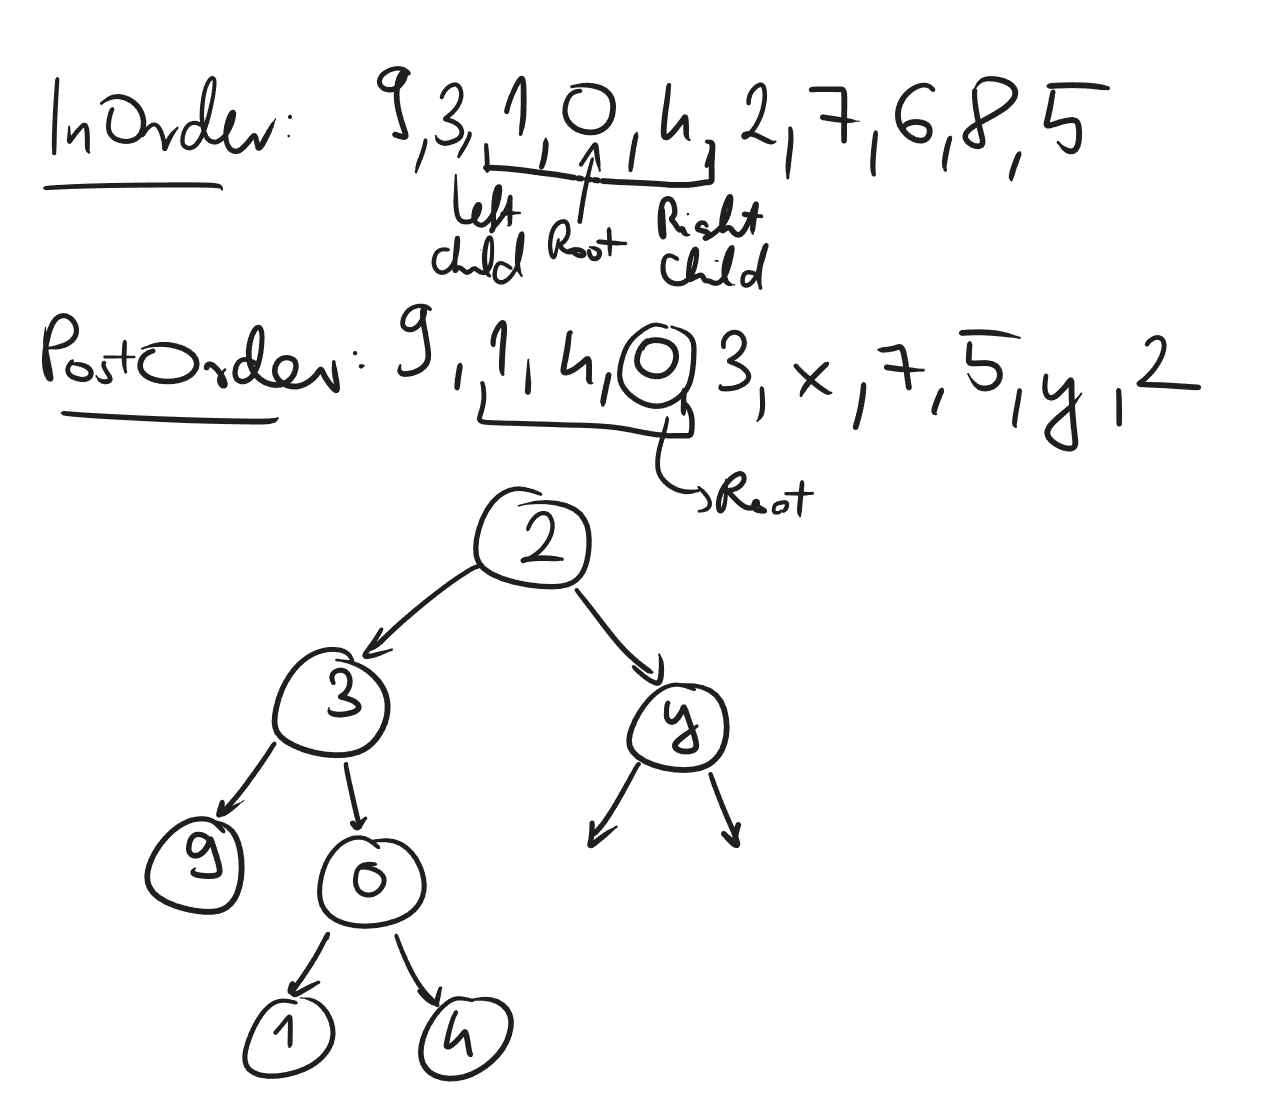 InOrder: 9,3,1,0,4,2,7,6,8,5
Left child Root Right child
PostOrder: 9,1,4,0 3,x,7,5,y,2
Root
2
3 y
9 0
1 4